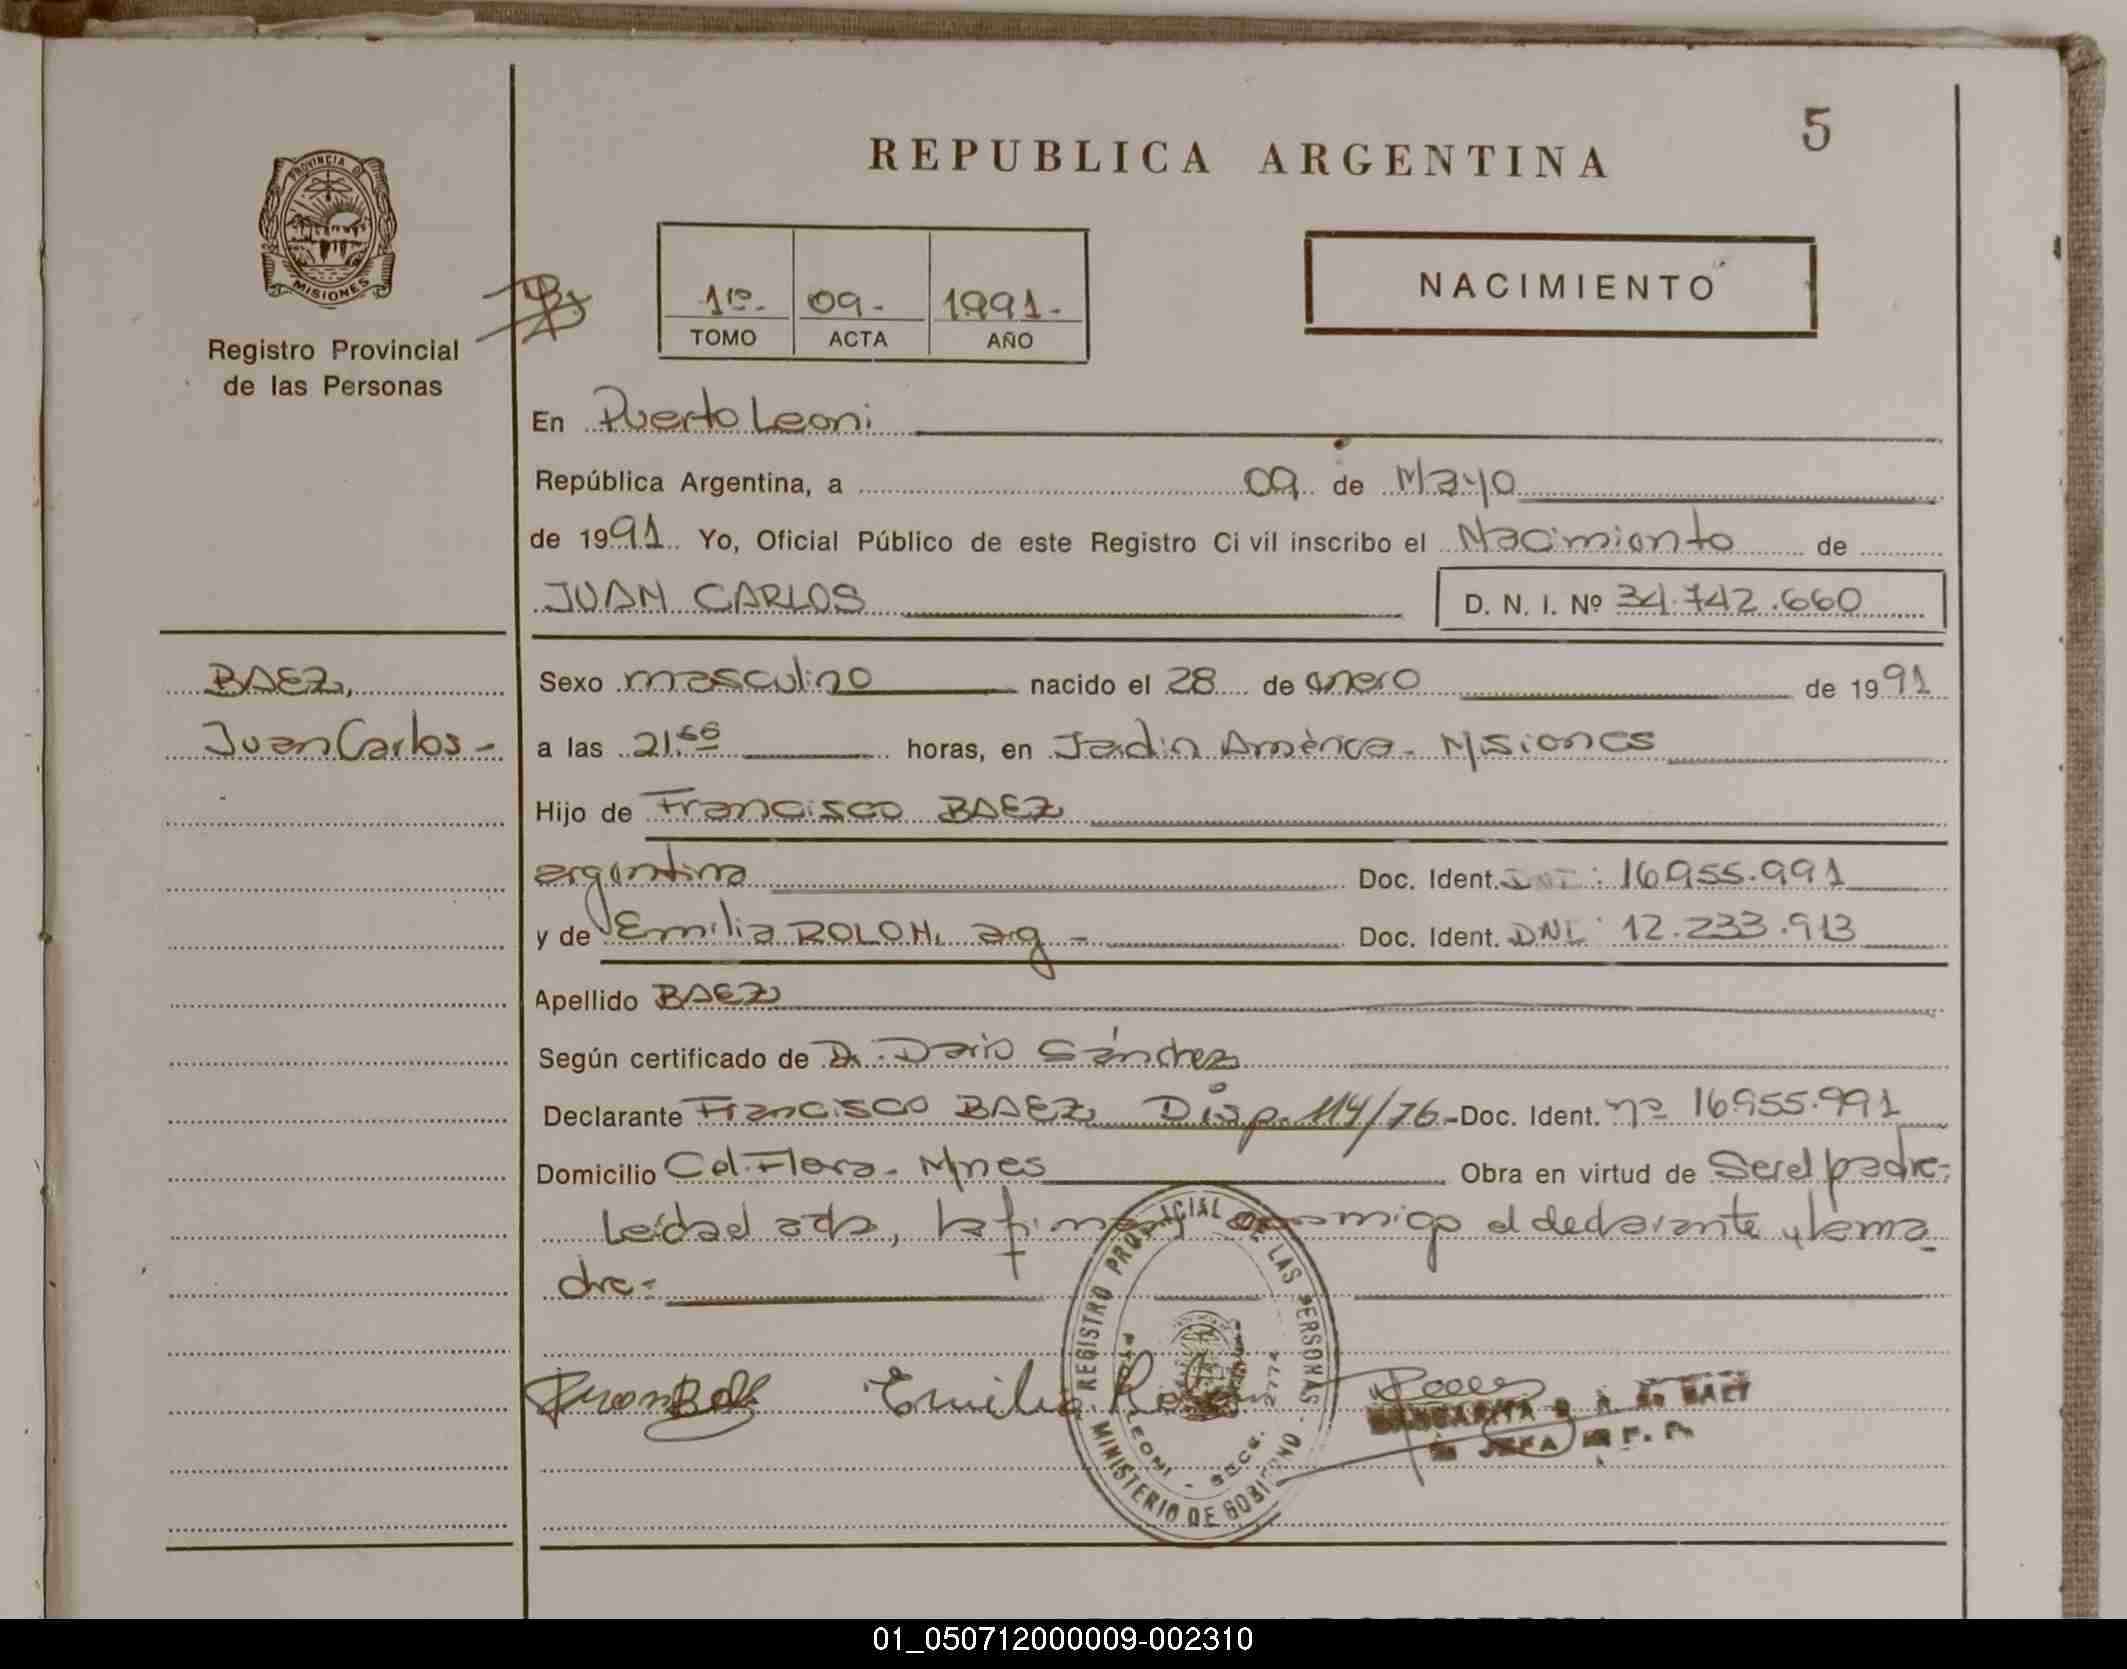 5
REPUBLICA ARGENTINA
PROVINCIA DE
MISIONES
Registro Provincial
de las Personas
1ro.- 09.- 1991.-
TOMO ACTA AÑO
NACIMIENTO
En Puerto Leoni
República Argentina, a 09 de Mayo
de 1991. Yo, Oficial Público de este Registro Civil inscribo el Nacimiento de
JUAN CARLOS D. N. I. Nº 34.742.660
BAEZ,
Juan Carlos -
Sexo masculino nacido el 28 de enero de 1991
a las 21. horas, en Jardin América - Misiones
Hijo de Francisco BAEZ
argentina Doc. Ident. DNI: 16.955.991
y de Emilia ROLON, arg - Doc. Ident. DNI: 12.233.913
Apellido BAEZ
Según certificado de Dr. Dario Sánchez
Declarante Francisco BAEZ Disp. 114/76 - Doc. Ident. nº 16955.991
Domicilio Col. Flora - Mnes Obra en virtud de Ser el padre-
Leída el acta, la firman conmigo el declarante y la ma
dre=
REGISTRO PROVINCIAL DE LAS PERSONAS
MINISTERIO DE GOBIERNO
LEONI - SECC. 2774
Emilia Rolon